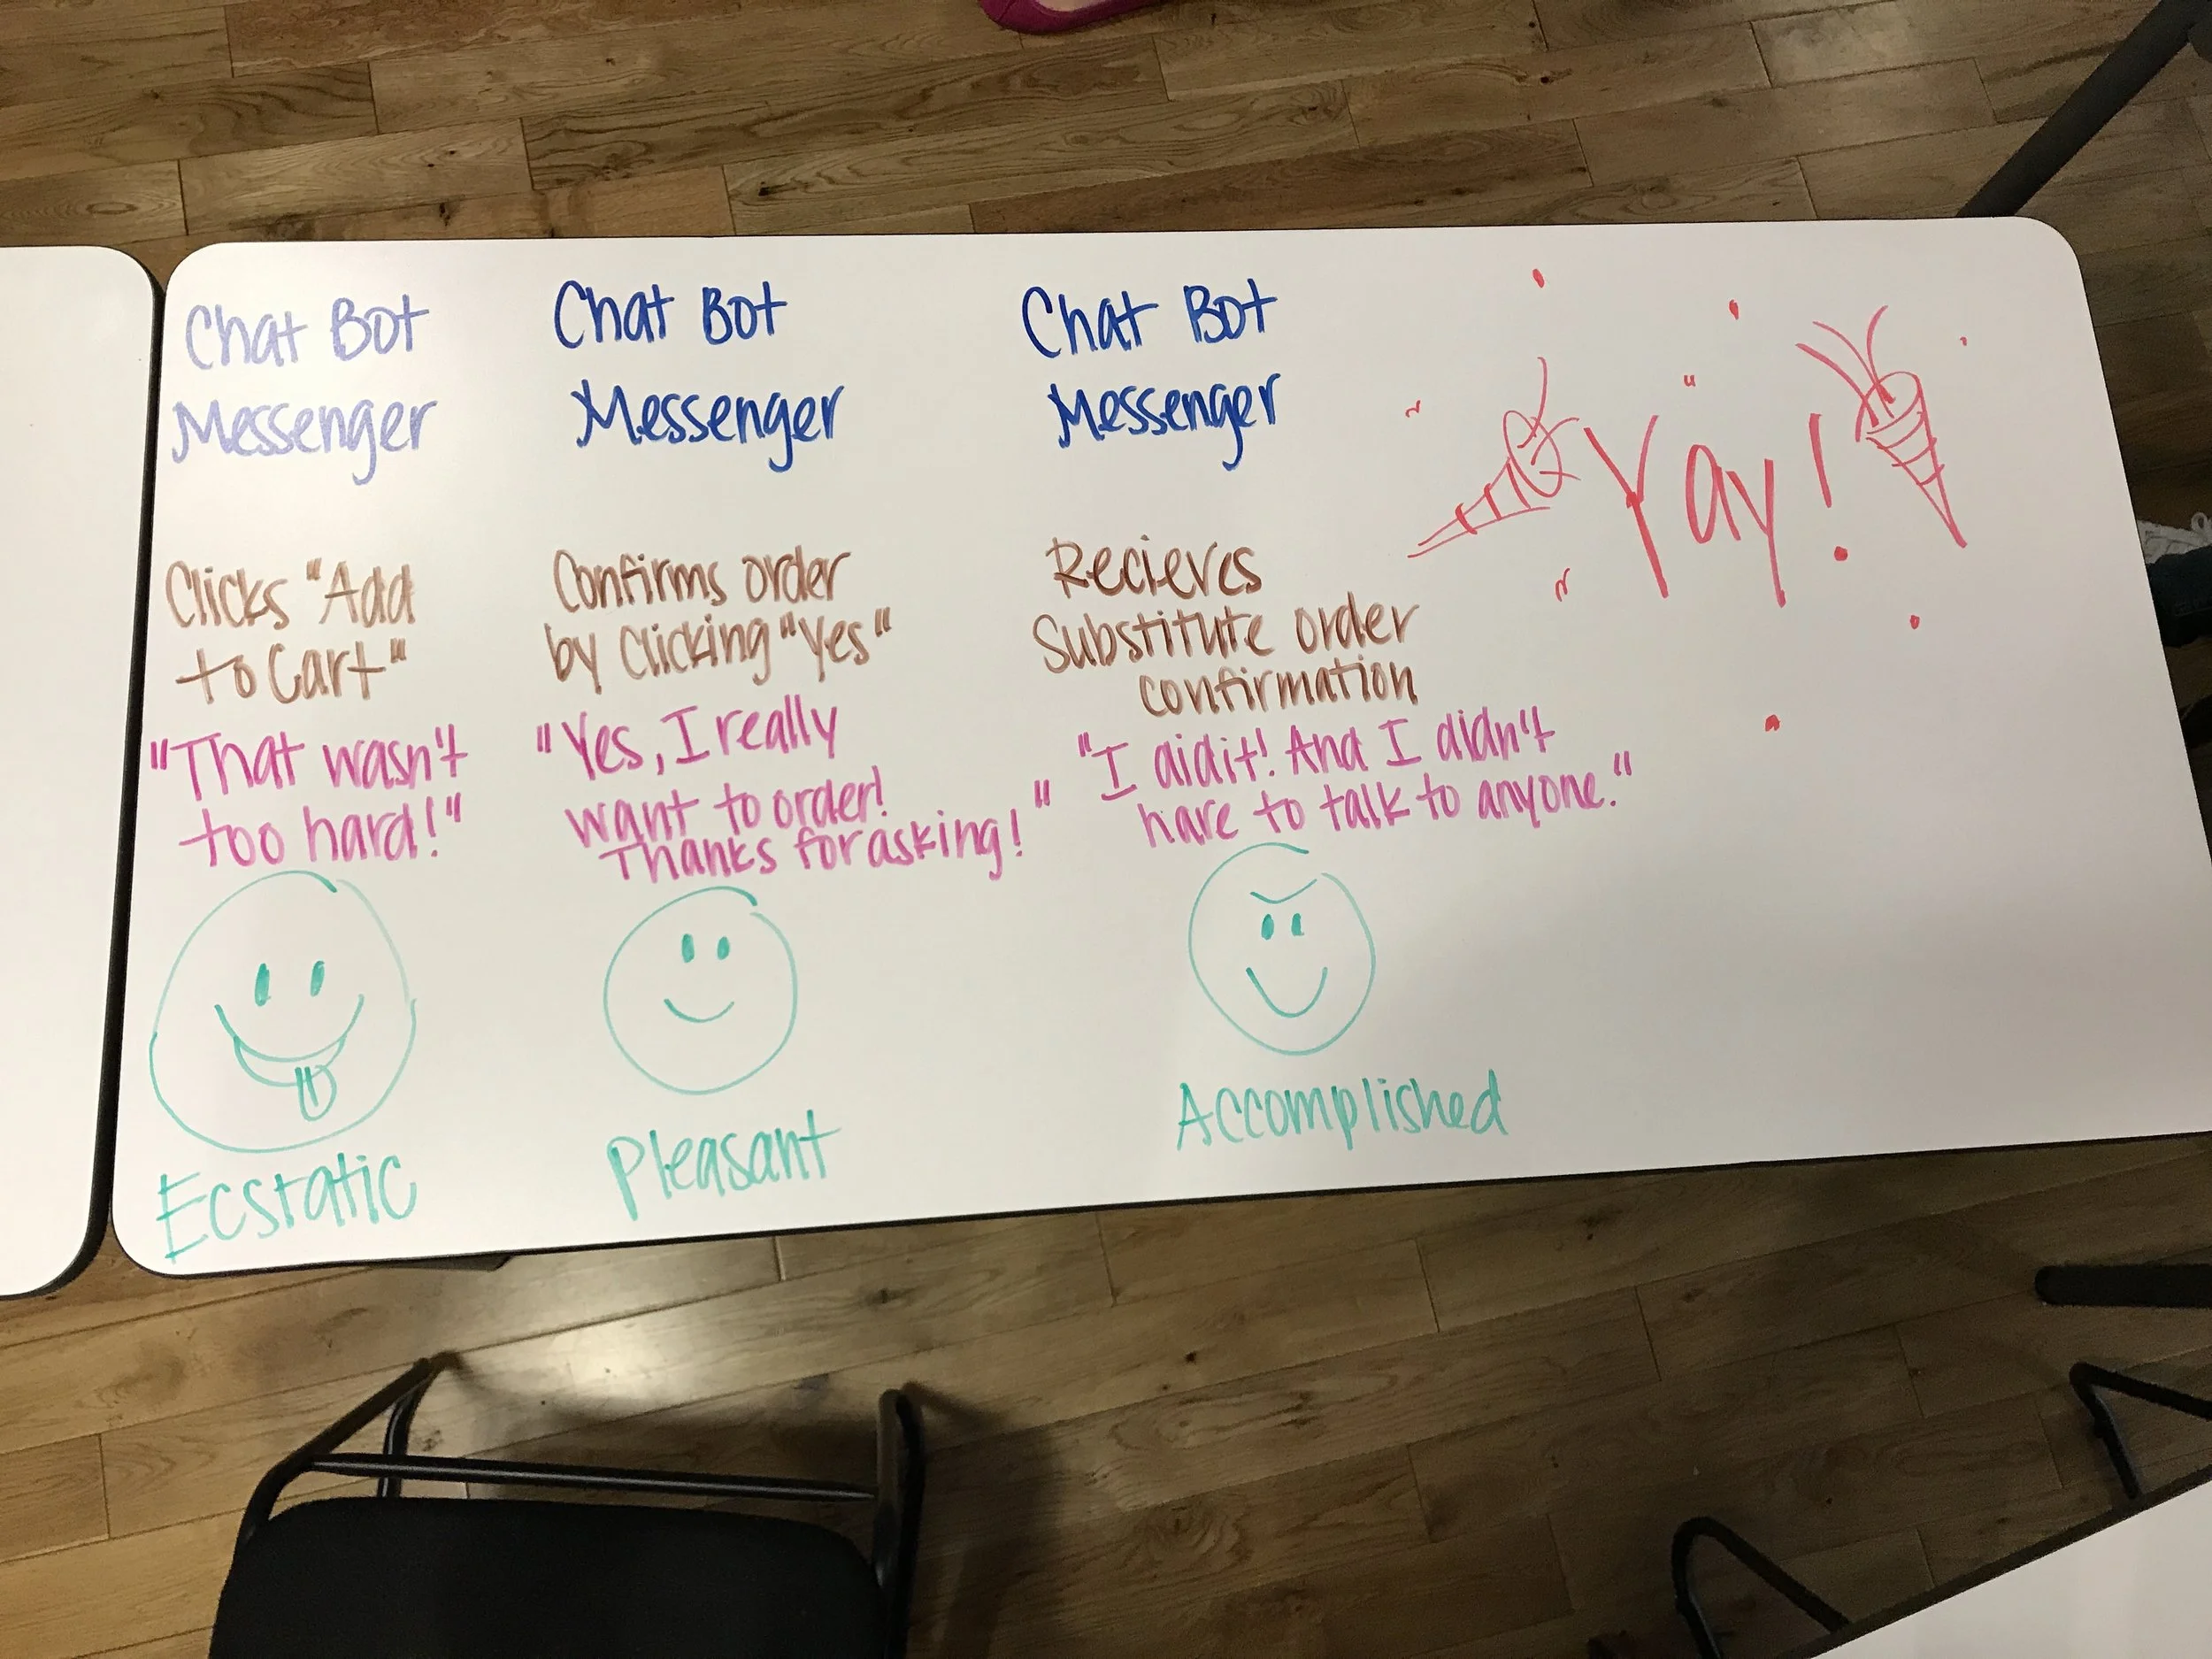 Chat Bot
Messenger
Clicks "Add
to Cart"
"That wasn't
too hard!"
Ecstatic
Chat Bot
Messenger
Confirms order
by clicking "Yes"
"Yes, I really
want to order!
Thanks for asking!"
Pleasant
Chat Bot
Messenger
Recieves
Substitute order
confirmation
"I did it! And I didn't
have to talk to anyone."
Accomplished
Yay!